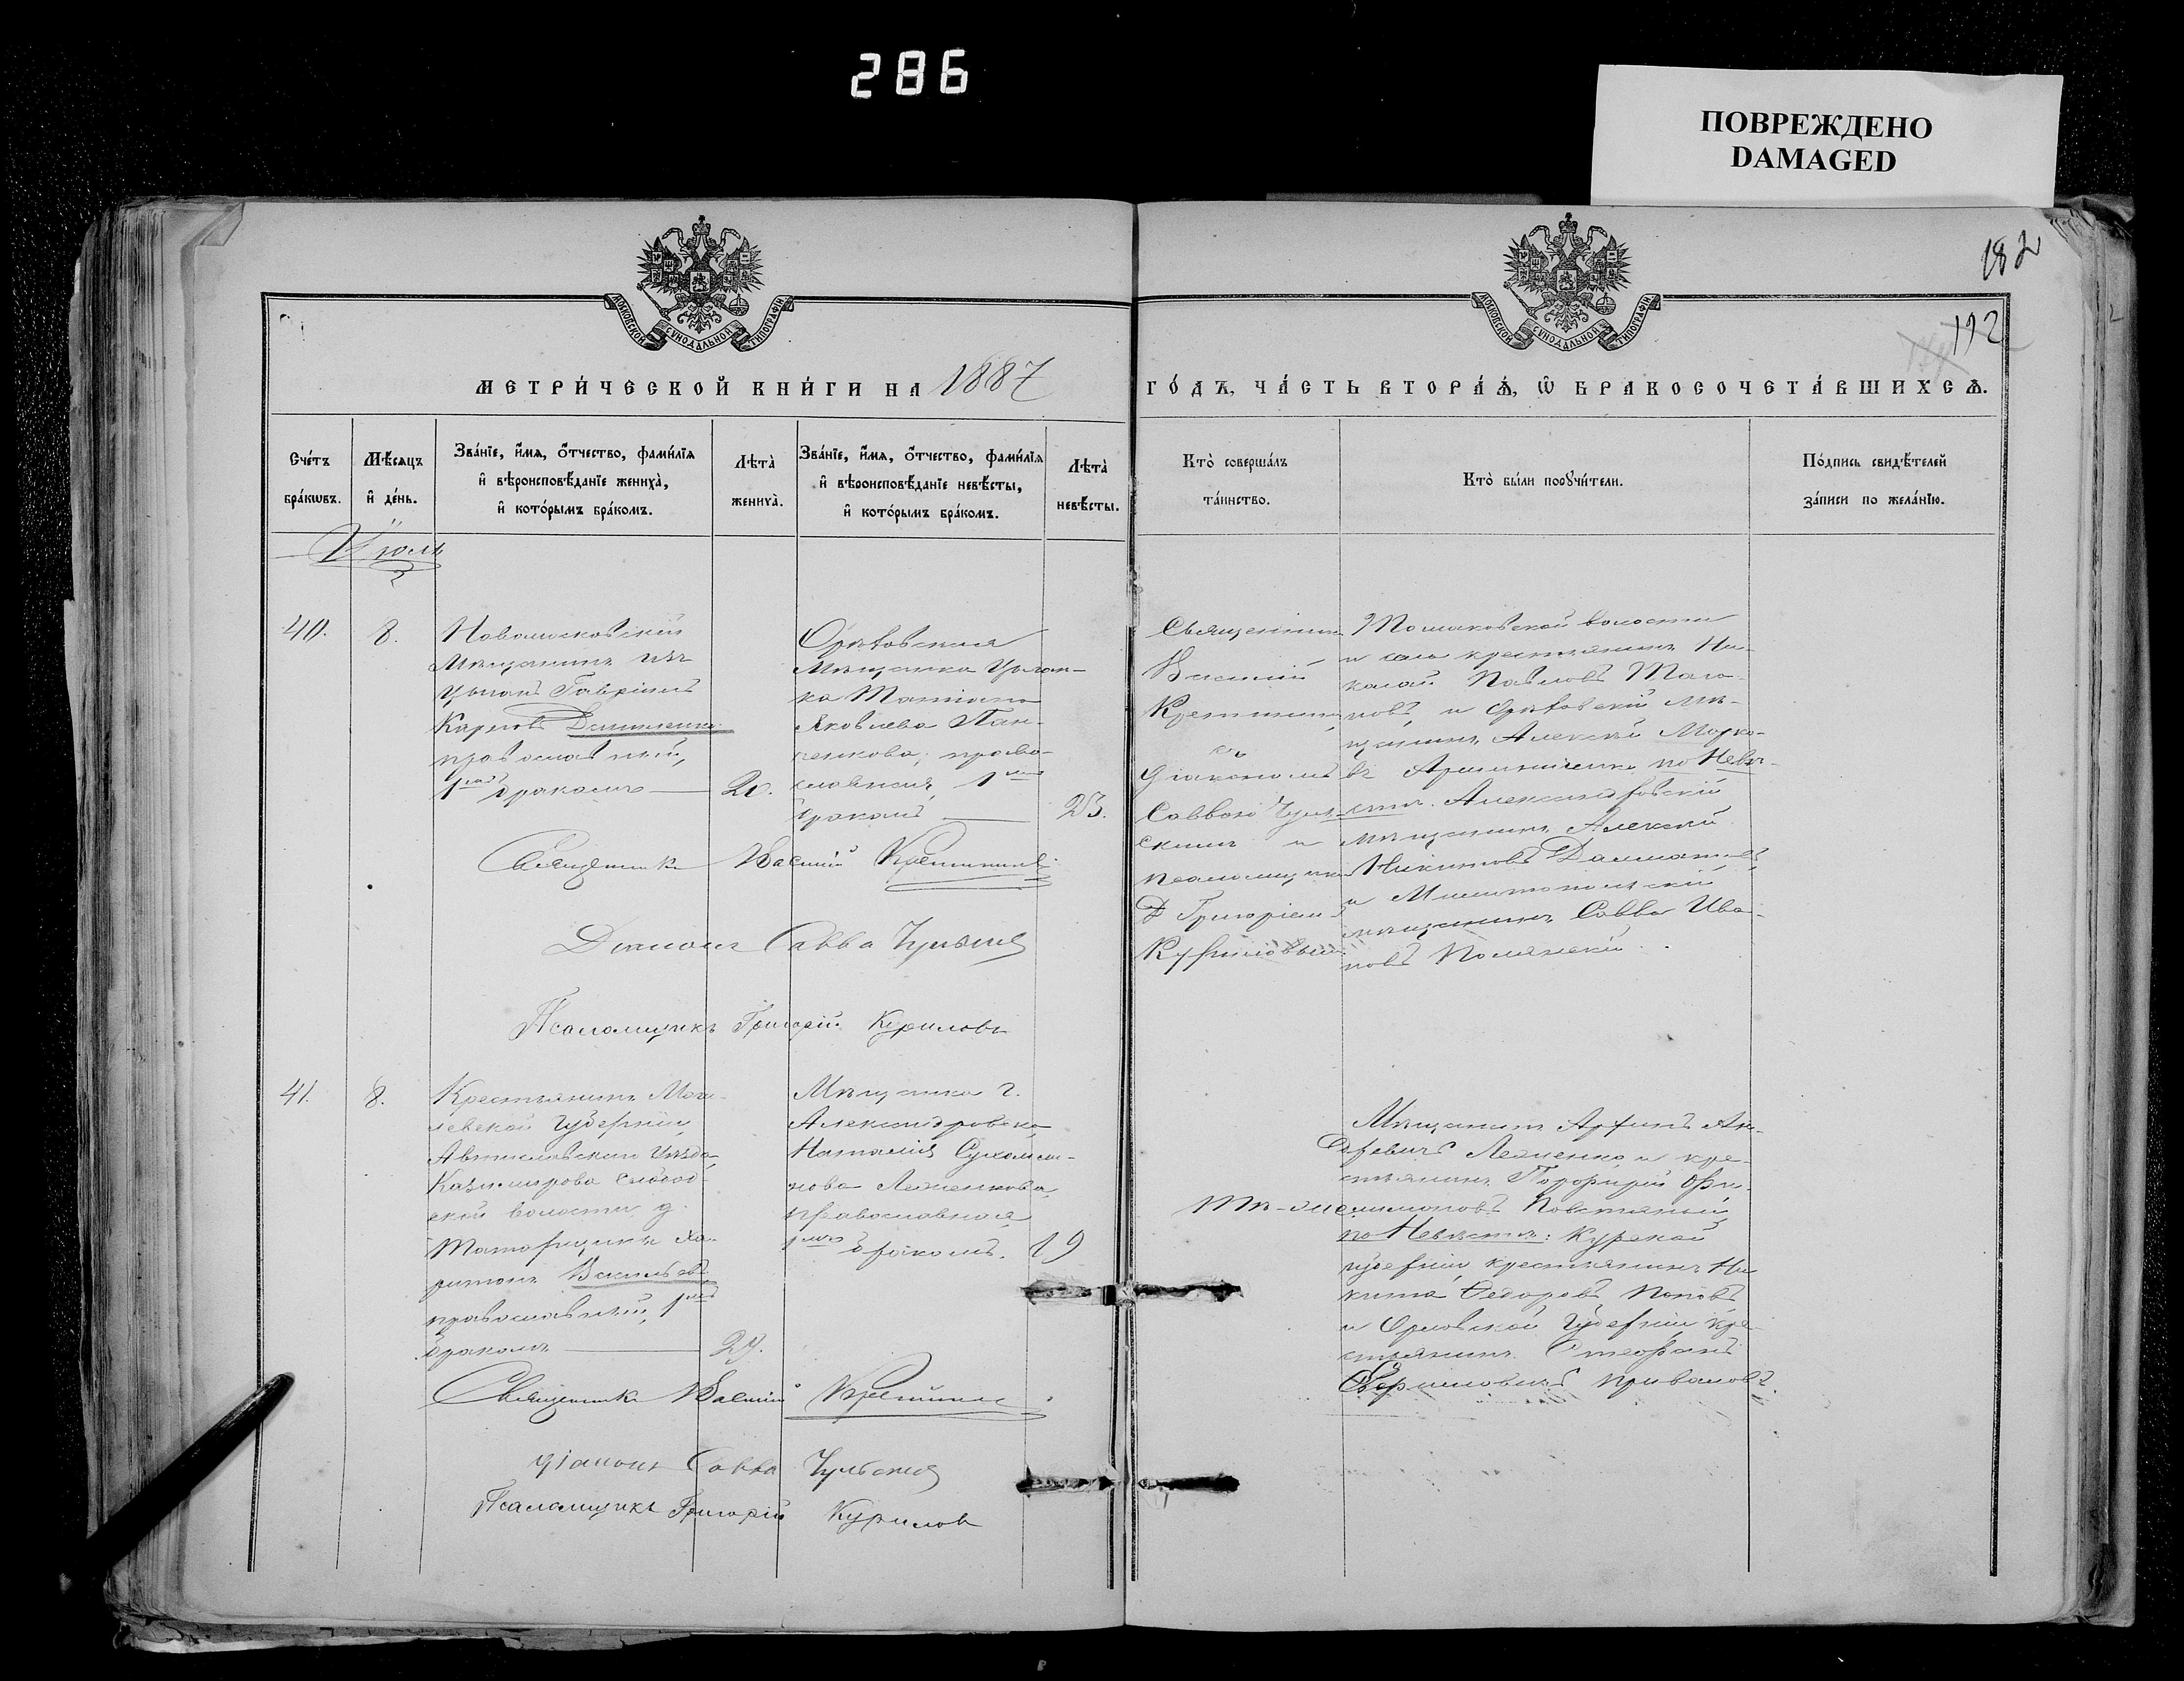 286
ПОВРЕЖДЕНО
DAMAGED
182
112
МОСКОВСКОЙ СУНОДАЛЬНОЙ ТИПОГРАФІИ
МОСКОВСКОЙ СУНОДАЛЬНОЙ ТИПОГРАФІИ
МЕТРИ́ЧЕСКОЙ КНИ́ГИ НА 1887
ГО́ДЪ, ЧА́СТЬ ВТОРА́Ѧ, Ѡ БРАКОСОЧЕТА́ВШИХСѦ.
Сче́тъ
бра́кѡвъ.
Мѣ́сѧцъ
и҆ де́нь.
Зва́нїе, и҆́мѧ, ѻ҆́тчество, фами́лїѧ
и҆ вѣроисповѣ́данїе жениха̀,
и҆ кото́рымъ бра́комъ.
Лѣ́та̀
жениха̀.
Зва́нїе, и҆́мѧ, ѻ҆́тчество, фами́лїѧ
и҆ вѣроисповѣ́данїе невѣ́сты,
и҆ кото́рымъ бра́комъ.
Лѣ́та̀
невѣ́сты.
Кто̀ соверша́лъ
та́инство.
Кто̀ бы́ли порꙋчи́тели.
По́дпись свидѣ́телей
за́писи по жела́нїю.
Іюль
40.
8.
Новомосковскій
Мѣщанинъ изъ
Цыганъ Гавріилъ
Карповъ
православный,
1мъ бракомъ
20.
Орѣховская
Мѣщанка Цыган-
ка Татіана
Яковлева Пан-
ченкова, право-
славная, 1мъ
бракомъ
23.
Священник
Василій
съ
Діакономъ
Саввою
скимъ и
псаломщикомъ
Григоріем
Куриловым
Томаковской волости
и села крестьянинъ Ни-
колай Павловъ
новъ, и Орѣховскій мѣ-
щанинъ Алексѣй Марко-
въ по Невѣ-
стѣ. Александровскій
мѣщанинъ Алексѣй
Никитовъ
и Мелитопольскій
мѣщанинъ Савва Ива-
новъ Полянскій.
Священникъ Василій
Діаконъ Савва
Псаломщикъ Григорій Куриловъ
41.
8.
Крестьянинъ Моги-
левской Губерніи
Мстиславскаго Уѣзда
Казимирово Слобод-
ской волости д.
Ха-
ритонъ Васильевъ
православный, 1мъ
бракомъ
29.
Мѣщанка г.
Александровска
Наталія
нова Леженкова,
православная
1мъ бракомъ.
19
Тѣ-же
Мѣщанинъ
Леженко и кре-
стьянинъ Порфирій Фи-
лимоновъ
по Невѣстѣ: Курской
губерніи крестьянинъ Ни
кита Ѳедоровъ Поповъ
и Орловской Губерніи кре-
стьянинъ Стефанъ
Приваловъ.
Священникъ Василій
Діаконъ Савва
Псаломщикъ Григорій Курилов